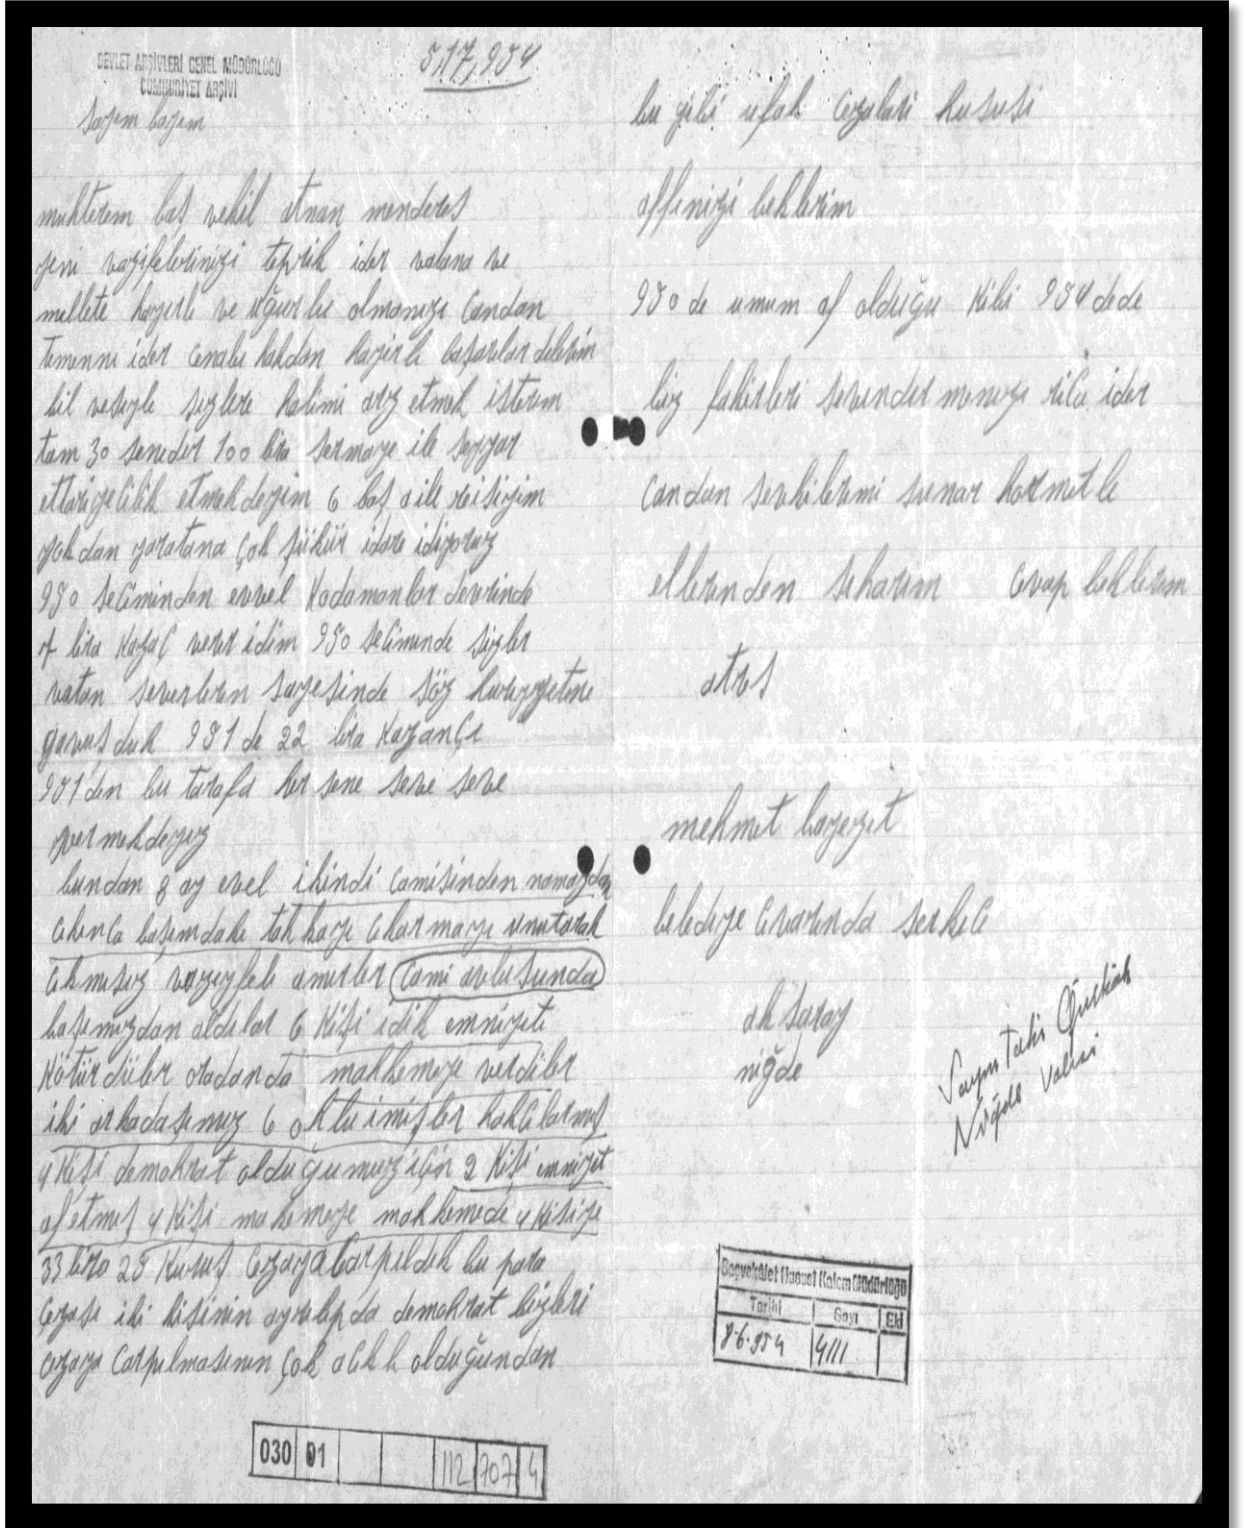 DEVLET ARŞİVLERİ GENEL MÜDÜRLÜĞÜ
CUMHURİYET ARŞİVİ
sayım bayım
muhterem baş vekil atnan menderes
yeni vazifelerinizi teprik ider vatana ve
mellete hayırlı ve uğurlu olmanızı Candan
temenni ider Cenabı hakdan hayirli başarılar dilerim
bil vesiyle sizlere halimi arz etmek isterim
tam 30 senedir 100 lira sermaye ile seyyar
ettariyeCilik etmekdeyim 6 baş aile reisiyim
yokdan yaratana çok şükür idare idiyoruz
950 seCiminden evvel Kodamanlar devrinde
lira verir idim 950 seCiminde sizler
vatan severlerin sayesinde söz hureyyetine
gavuşduk 951 de 22 lira KazanÇi
951 den bu tarafa her sene seve seve
vermekdeyiz
bundan 8 ay evel ikindi Camisinden namazdan
CikinCa başımdaki takkayı Cikarmayı unutarak
vaziyle amirler Cami avlusunda
başımızdan aldılar 6 Kişi idik emniyete
Kötürdüler oradanda mahkemeye verdiler
iki arkadaşımız 6 oklu imişler
4 Kişi demokrat olduğumuz iÇin 2 Kişi emniyet
af etmiş 4 Kişi makemeye mahkemede 4 Kişiye
33 lira 25 Kuruş Cezaya Carpıldık bu para
Cezası iki kişinin ayrılıpda demokrat bizleri
Cezaya Carpılmasının Çok aCıklı olduğundan
030 01 112 707 4
5,17,954
bu gibi ufak Cezaları hususi
affinizi beklerim
950 de umum af olduğu Kibi 954 dede
biz fakirleri sevindir menizi riCa ider
Candan sevkilerimi sunar hormetle
ellerinden sıkarım Cevap beklerim
atres
mehmet bayezit
belediye Civarında serkiCi
aksaray
niğde
Sayın Tahir
Niğde Valisi
Başvekâlet Hususî Kalem Müdürlüğü
Tarihi Sayı Eki
8-6-954 4111